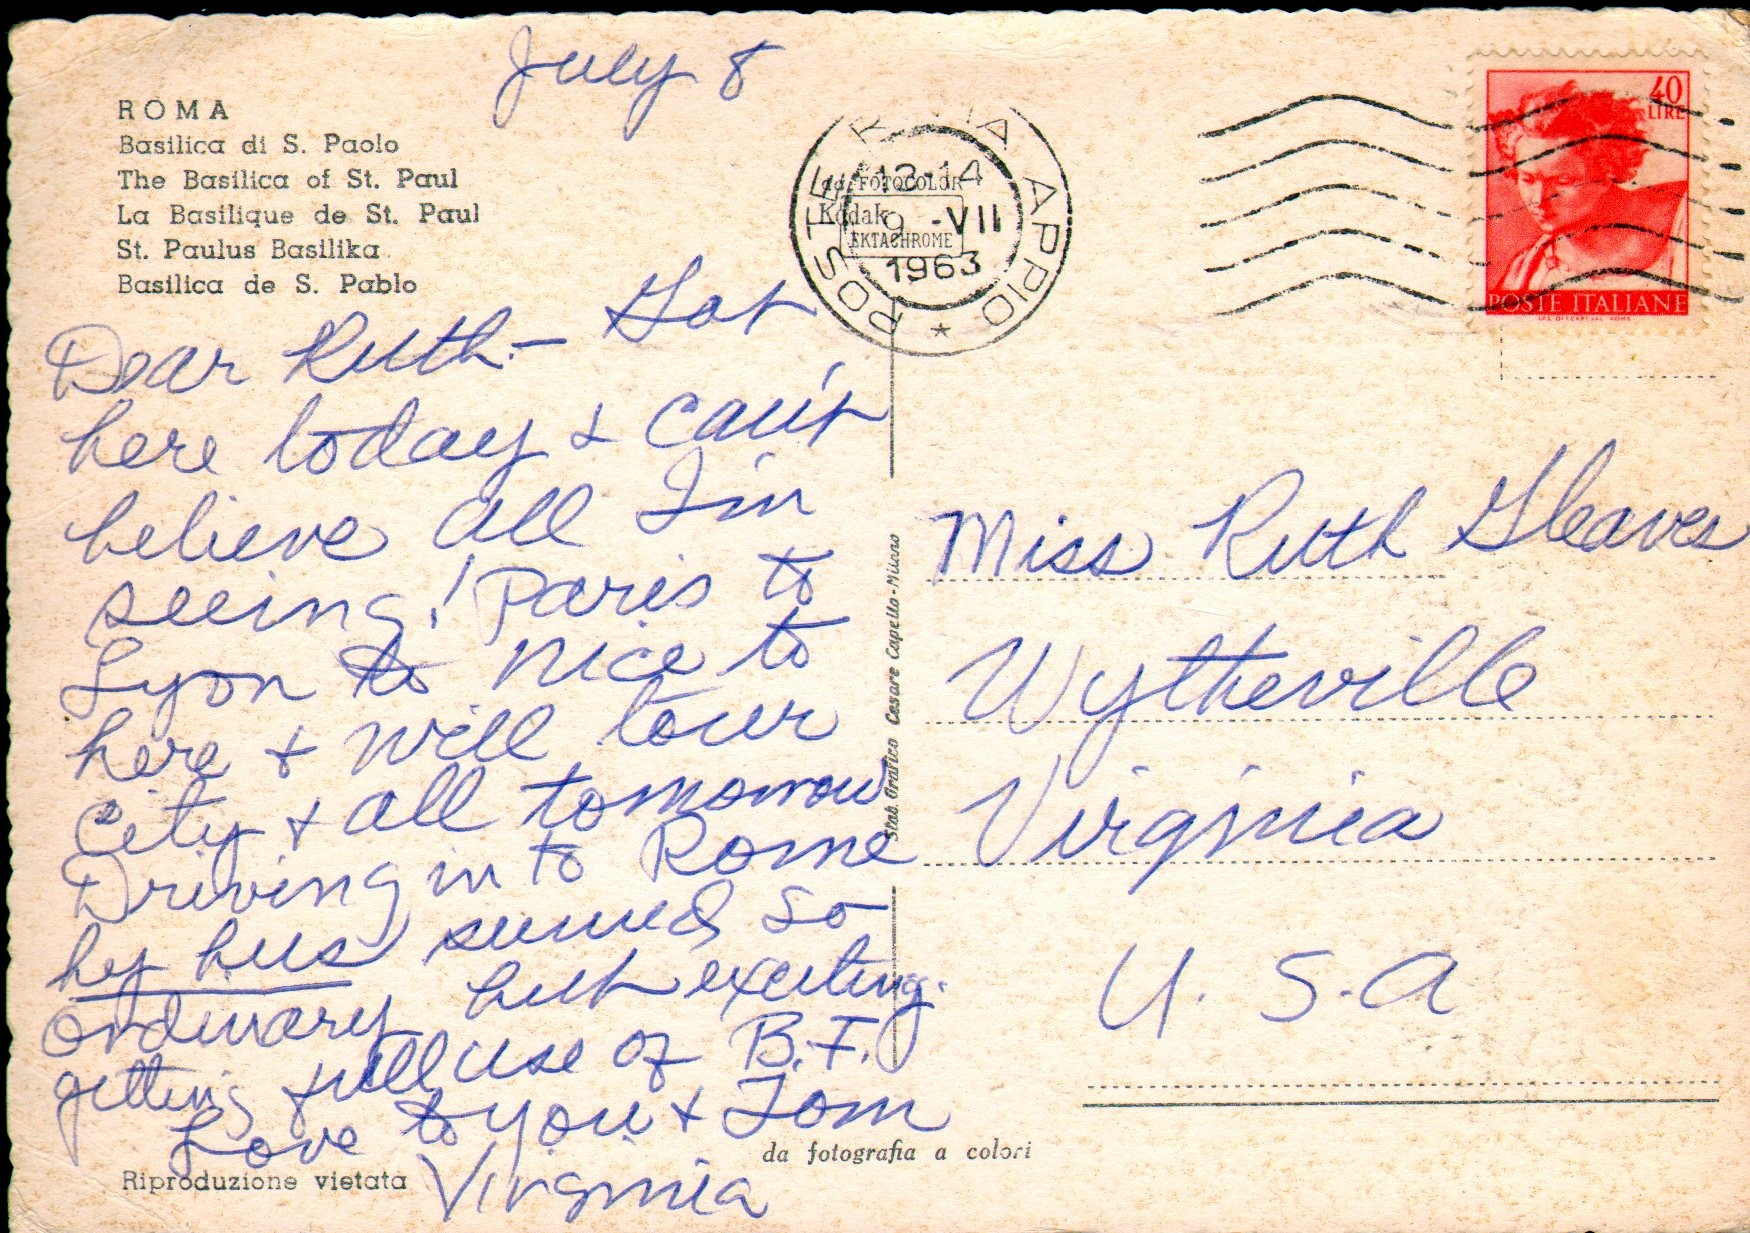 July 8
ROMA
Basilica di S. Paolo
The Basilica of St. Paul
La Basilique de St. Paul
St. Paulus Basilika
Basilica de S. Pablo
Dear Ruth - Got
here today & can't
believe all I'm
seeing! Paris to
Lyon to Nice to
here & will tour
city & all tomorrow
Driving in to Rome
by bus seemed so
ordinary but exciting.
getting full use of B.F.
Love to you & Tom
Virginia
Riproduzione vietata
da fotografia a colori
Stab. Grafico Cesare Capello - Milano
ed. FOTOCOLOR
Kodak
EKTACHROME
POSTE ROMA APPIO *
12-14
9 -VII
1963
40
LIRE
POSTE ITALIANE
Miss Ruth Gleaves
Wytheville
Virginia
U. S. A